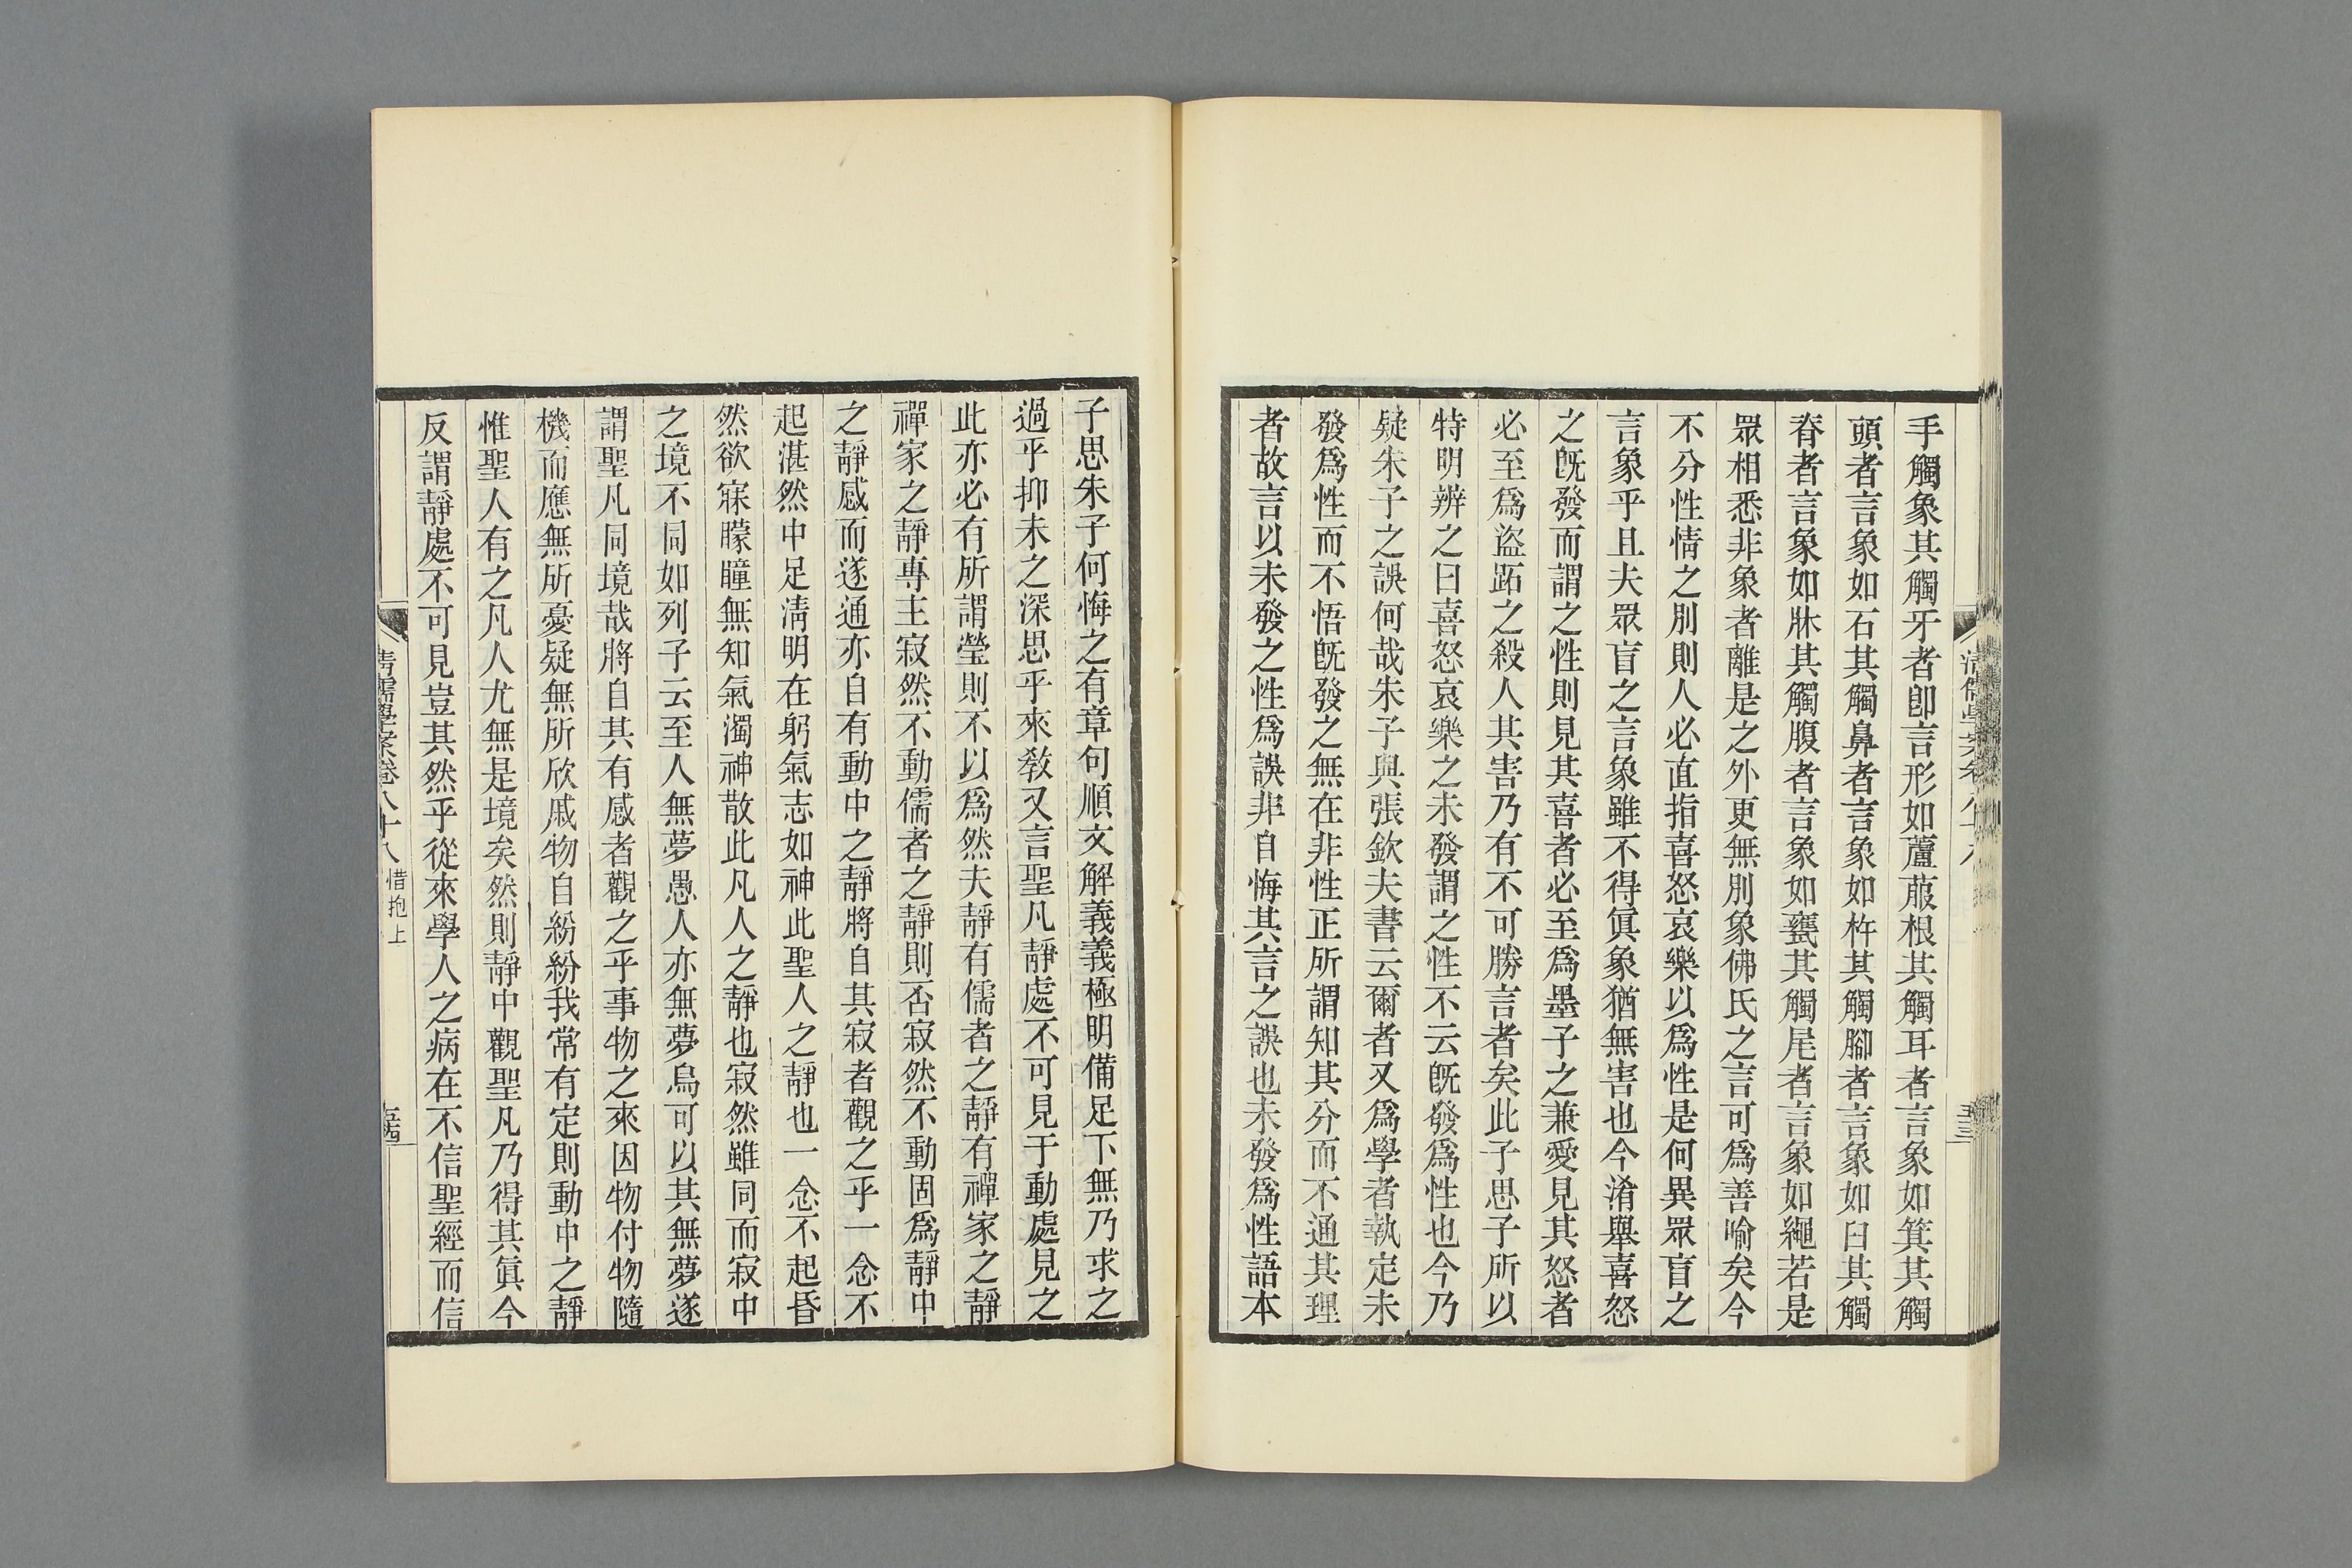 手觸象其觸牙者卽言形如蘆菔根其觸耳者言象如箕其觸
頭者言象如石其觸鼻者言象如杵其觸腳者言象如臼其觸
脊者言象如牀其觸腹者言象如甕其觸尾者言象如繩若是
眾相悉非象者離是之外更無別象佛氏之言可爲善喻矣今
不分性情之別則人必直指喜怒哀樂以爲性是何異眾盲之
言象乎且夫眾盲之言象雖不得眞象猶無害也今淆舉喜怒
之旣發而謂之性則見其喜者必至爲墨子之兼愛見其怒者
必至爲盜跖之殺人其害乃有不可勝言者矣此子思子所以
特明辨之曰喜怒哀樂之未發謂之性不云旣發爲性也今乃
疑朱子之誤何哉朱子與張欽夫書云爾者又爲學者執定未
發爲性而不悟旣發之無在非性正所謂知其分而不通其理
者故言以未發之性爲誤非自悔其言之誤也未發爲性語本
子思朱子何悔之有章句順文解義義極明備足下無乃求之
過乎抑未之深思乎來敎又言聖凡靜處不可見于動處見之
此亦必有所謂瑩則不以爲然夫靜有儒者之靜有禪家之靜
禪家之靜專主寂然不動儒者之靜則否寂然不動固爲靜中
之靜感而遂通亦自有動中之靜將自其寂者觀之乎一念不
起湛然中足淸明在躬氣志如神此聖人之靜也一念不起昏
然欲寐矇瞳無知氣濁神散此凡人之靜也寂然雖同而寂中
之境不同如列子云至人無夢愚人亦無夢烏可以其無夢遂
謂聖凡同境哉將自其有感者觀之乎事物之來因物付物隨
機而應無所憂疑無所欣戚物自紛紛我常有定則動中之靜
惟聖人有之凡人尤無是境矣然則靜中觀聖凡乃得其眞今
反謂靜處不可見豈其然乎從來學人之病在不信聖經而信
淸儒學案卷八十八 惜抱上 五四